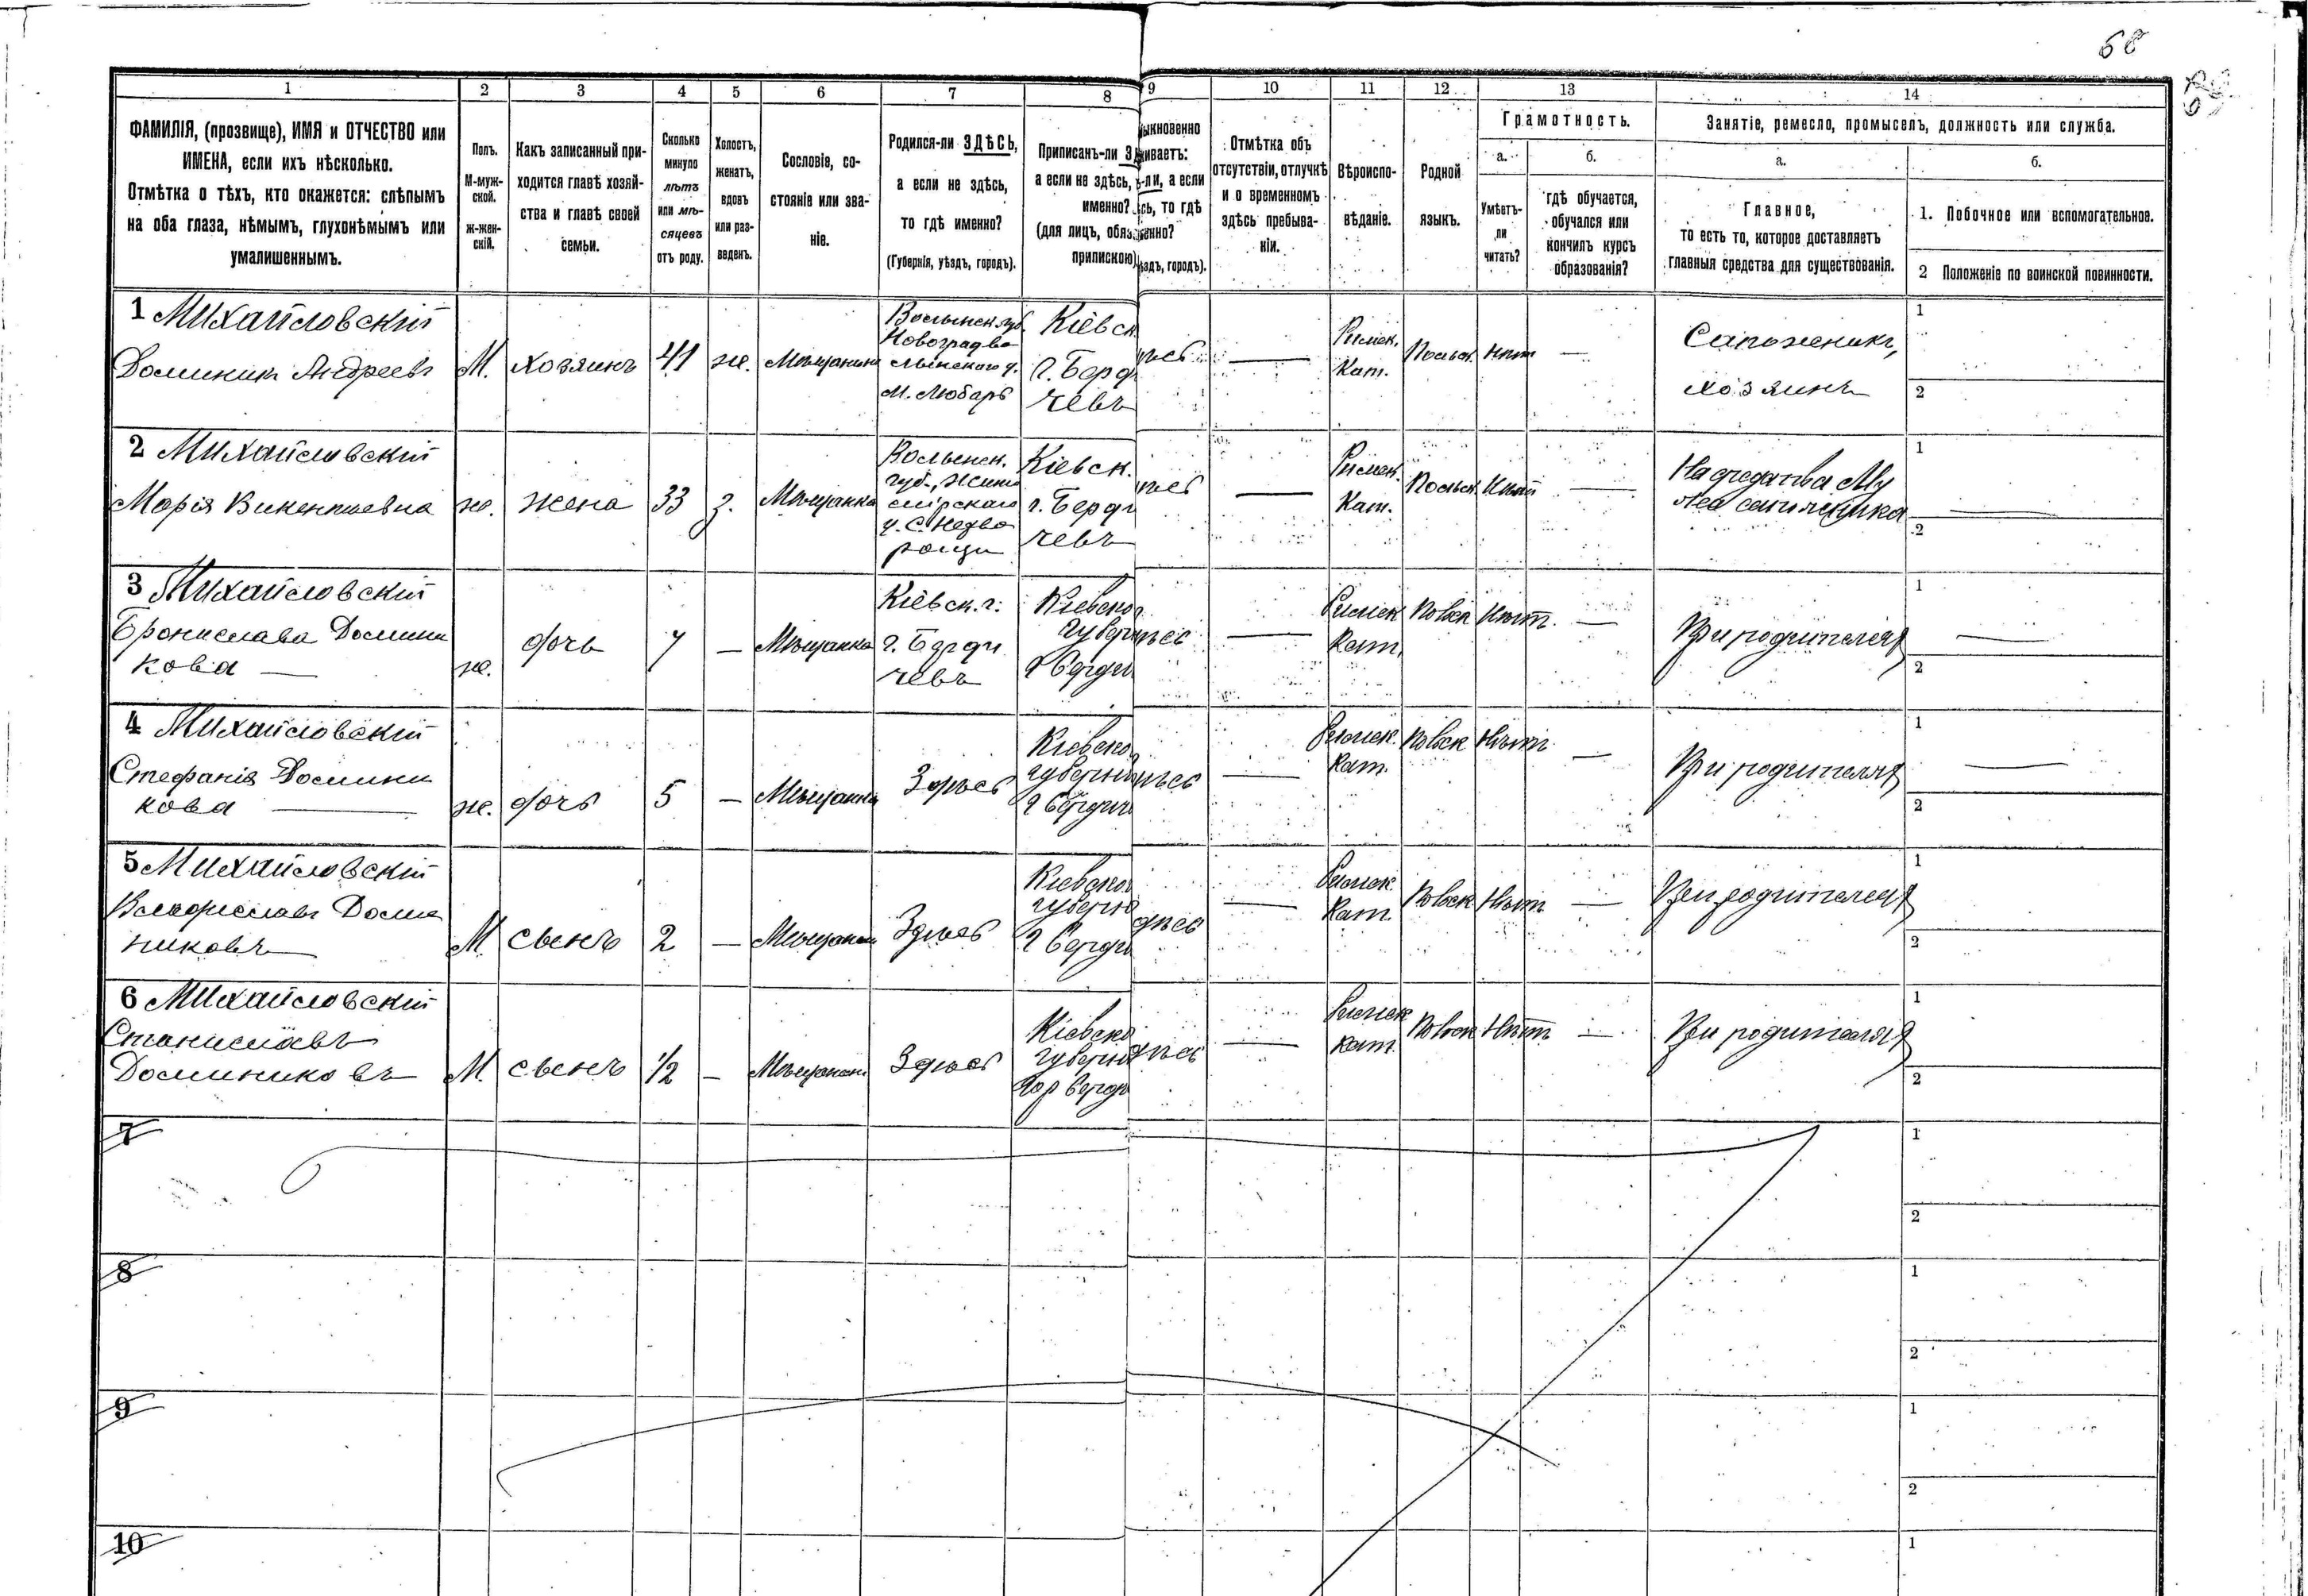 68
1
2
3
4
5
6
7
8
9
10
11
12
13
14
ФАМИЛІЯ, (прозвище), ИМЯ и ОТЧЕСТВО или
ИМЕНА, если ихъ нѣсколько.
Отмѣтка о тѣхъ, кто окажется: слѣпымъ
на оба глаза, нѣмымъ, глухонѣмымъ или
умалишеннымъ.
Полъ.
М-муж-
ской.
ж-жен-
скій.
Какъ записанный при-
ходится главѣ хозяй-
ства и главѣ своей
семьи.
Сколько
минуло
лѣтъ
или мѣ-
сяцевъ
отъ роду.
Холостъ,
женатъ,
вдовъ
или раз-
веденъ.
Сословіе, со-
стояніе или зва-
ніе.
Родился-ли ЗДѢСЬ,
а если не здѣсь,
то гдѣ именно?
(Губернія, уѣздъ, городъ).
Приписанъ-ли З
а если не здѣсь,
именно?
(для лицъ, обяз
припискою)
ыкновенно
живаетъ:
ь-ли, а если
сь, то гдѣ
енно?
ѣздъ, городъ).
Отмѣтка объ
отсутствіи, отлучкѣ
и о временномъ
здѣсь пребыва-
ніи.
Вѣроиспо-
вѣданіе.
Родной
языкъ.
Грамотность.
а.
б.
Умѣетъ-
ли
читать?
гдѣ обучается,
обучался или
кончилъ курсъ
образованія?
Занятіе, ремесло, промыселъ, должность или служба.
а.
б.
Главное,
то есть то, которое доставляетъ
главныя средства для существованія.
1. Побочное или вспомогательное.
2 Положеніе по воинской повинности.
1 Михайловскій
Доминик Андреевъ
М.
хозяинъ
41
ж.
Мѣщанинъ
Волынск. губ.
Новоградво
лынскаго у.
м. Любарь
Кіевск
г. Берд
чевъ
ѣсь
—
Римск.
Кат.
Польск.
нѣт
—
Сапожникъ,
хозяинъ
1
2
2 Михайловскій
Марія Викентіевна
ж.
жена
33
з.
Мѣщанка
Волынск.
губ., Жито
мірскаго
у. с.
Кіевск.
г. Берди
чевъ
ѣсь
—
Римск.
Кат.
Польск.
Нѣт
—
На средства Му
жа сапожника
1
2
3 Михайловскій
Бронислава Домини
кова —
ж.
дочь
7
—
Мѣщанка
Кіевск. г.
г. Берди
чевъ
Кіевско
губерн
г Берди
ѣсь
—
Римск
Кат.
Полск
Нѣт.
—
При родителях
1
2
4 Михайловскій
Стефанія Домини
кова —
ж.
дочь
5
—
Мѣщанка
Здѣсь
Кіевско
губерни
г Бердич
ѣсь
—
Римск.
Кат.
Полск
Нѣт
—
При родителях
1
2
5 Михайловскій
Владиславъ Доми
никовъ
М.
сынъ
2
—
Мѣщанин
Здѣсь
Кіевско
губерн
г Берди
дѣсь
—
Римск
Кат.
Полск
Нѣт
—
При родителях
1
2
6 Михайловскій
Станиславъ
Доминиковъ
М.
сынъ
1/2
—
Мѣщанин
Здѣсь
Кіевско
губерн
гор Берди
дѣсь
—
Римск
Кат.
Полск
Нѣт
—
При родителях
1
2
7
1
2
8
1
2
9
1
2
10
1